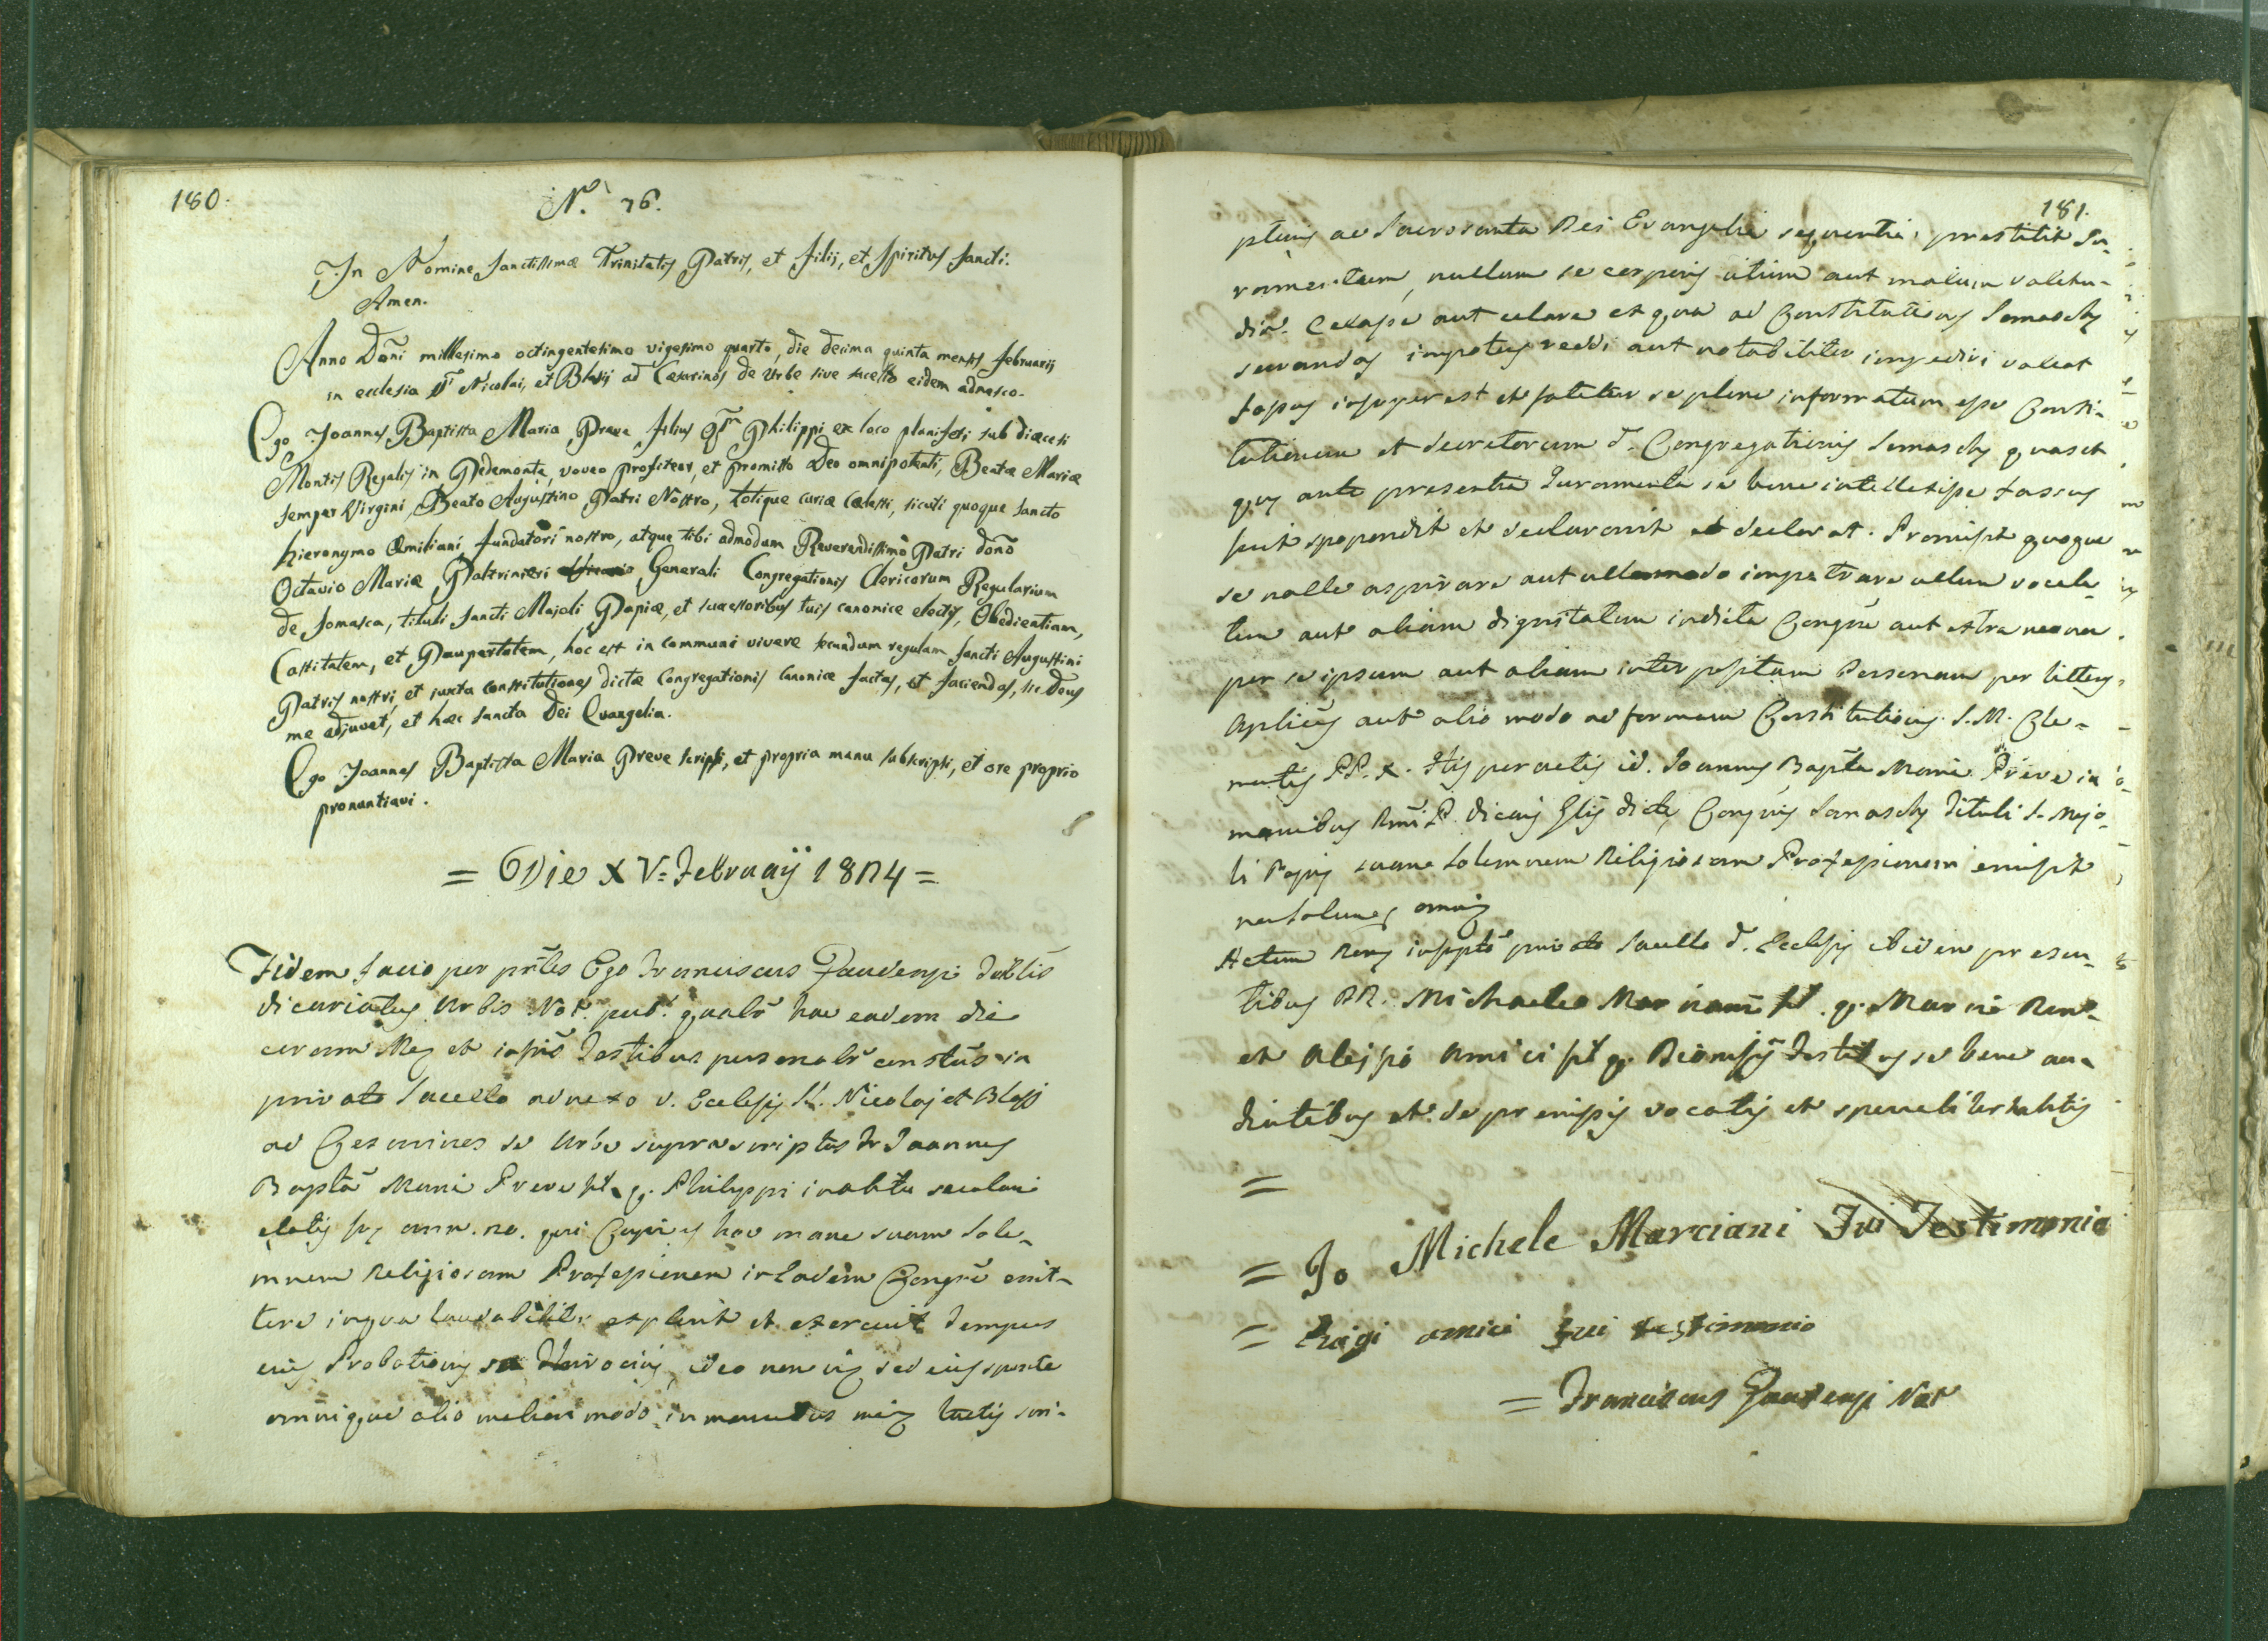 180.
N.º 76.
In Nomine Sanctissimæ Trinitatis Patris, et Filii, et Spiritus Sancti.
Amen.
Anno Dñi millesimo octingentesimo vigesimo quarto, die decima quinta mensis Februarii
in ecclesia SS Nicolai, et Blasij ad Cæsarinos de Urbe sive sacello eidem adnexo.
Ego Joannes Baptista Maria Preve filius qm Philippi ex loco planiferi sub diœcesi
Montis Regalis in Pedemonte, voveo profiteor, et promitto Deo omnipotenti, Beatæ Mariæ
semper Virgini, Beato Augustino Patri Nostro, totique curiæ cælesti, sicuti quoque Sancto
Hieronymo Æmiliani fundatori nostro, atque tibi admodum Reverendissimo Patri dono
Octavio Mariæ Paltrinieri Generali Congregationis Clericorum Regularium
de Somasca, tituli Sancti Majoli Papiæ, et successoribus tuis canonice electis, Obedientiam,
Castitatem, et Paupertatem, hoc est in communi vivere secundum regulam Sancti Augustini
Patris nostri, et juxta constitutiones dictæ Congregationis canonice factas, et faciendas, sic Deus
me adjuvet, et hæc Sancta Dei Evangelia.
Ego Joannes Baptista Maria Preve scripsi, et propria manu subscripsi, et ore proprio
pronuntiavi.
= Die XV= Februaij 1824 =
Fidem facio per pñtes Ego Franciscus Gaudenzi
Vicariatus Urbis Not. pub. qualr hac eadem die
coram Me et infris Testibus personalr constus in
privato Sacello adnexo v. Ecclesie SS. Nicolaj et Blasij
ad Cesarinos de Urbe suprascriptus Joannes
Bapta Maria Preve fil. q. Philippi in abitu seculari
etatis sue ann. 20. qui cupiens hac mane suam Sole-
mnem Religiosam Professionem in Eadem Congrē emit-
tere in qua laudabiliter explevit et exercuit Tempus
eius Probationis ideo non vi sed eius sponte
omnique alio meliori modo in manibus meis tactis scri-
181.
ptuis ac Sacrosanta Dei Evangelia sequentia prestitit Ju-
ramentum, nullum se corporis vitium aut malum valetu-
din. celasse aut celare ex qua ad Constitutiones Somasche
servandas impotens reddi aut notabiliter impediri valeat
fassus insuper est et fatetur se plene informatum esse Consti-
tutionum et Decretorum d. Congregationis Somasche quas et
que ante presentia Juramenta se bene intellexisse fassus
fuit spopondit et declaravit et declarat. Promisit quoque
se nolle aspirare aut ullo modo impetrare ullum vocala-
tum aut aliam dignitatem in dicta Congrē aut extra
per se ipsum aut aliam interpositam Personam per litteras
Aplicas aut alio modo ad formam Constitutionis S. M. Cle-
mentis PP. X. His peractis id. Joannes Bapta Maria Preve in
manibus Rmi P. Vicarij Glis dicte Congnis Somasche Tituli S. Majo-
li Papie suam Solemnem Religiosam Professionem emisit
non solum omni
Actum Rome in sppto privato Sacello d. Ecclesie ibidem presen-
tibus DD. Michaele Marciani fil. q. Rom.
et Aloisio Amici fil q. Dionisij Testibus se bene au-
dientibus et de premissis vocatis et specialiter habitis
=
= Io Michele Marciani Fui Testimonio
= Luigi amici fui testimonio
= Franciscus Gaudenzi Not